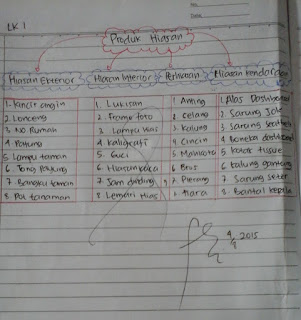 No.
Date
LK 1
Produk Hiasan
Hiasan Exterior Hiasan Interior Perhiasan Hiasan kendaraan
1. Kincir angin 1. Lukisan 1. Anting 1. Alas Dashboard
2. Lonceng 2. Frame foto 2. Gelang 2. Sarung Jok
3. No. Rumah 3. Lampu hias 3. Kalung 3. Sarung
4. Patung 4. Kaligrafi 4. Cincin 4. Boneka dashboard
5. Lampu taman 5. Guci 5. Mahkota 5. kotak tissue
6. Tong 6. Hiasan kaca 6. Bros 6. kalung gantung
7. Bangku taman 7. Jam dinding 7. Piercing 7. Sarung Setir
8. Pot tanaman 8. Lemari Hias 8. Tiara 8. Bantal kepala
2015